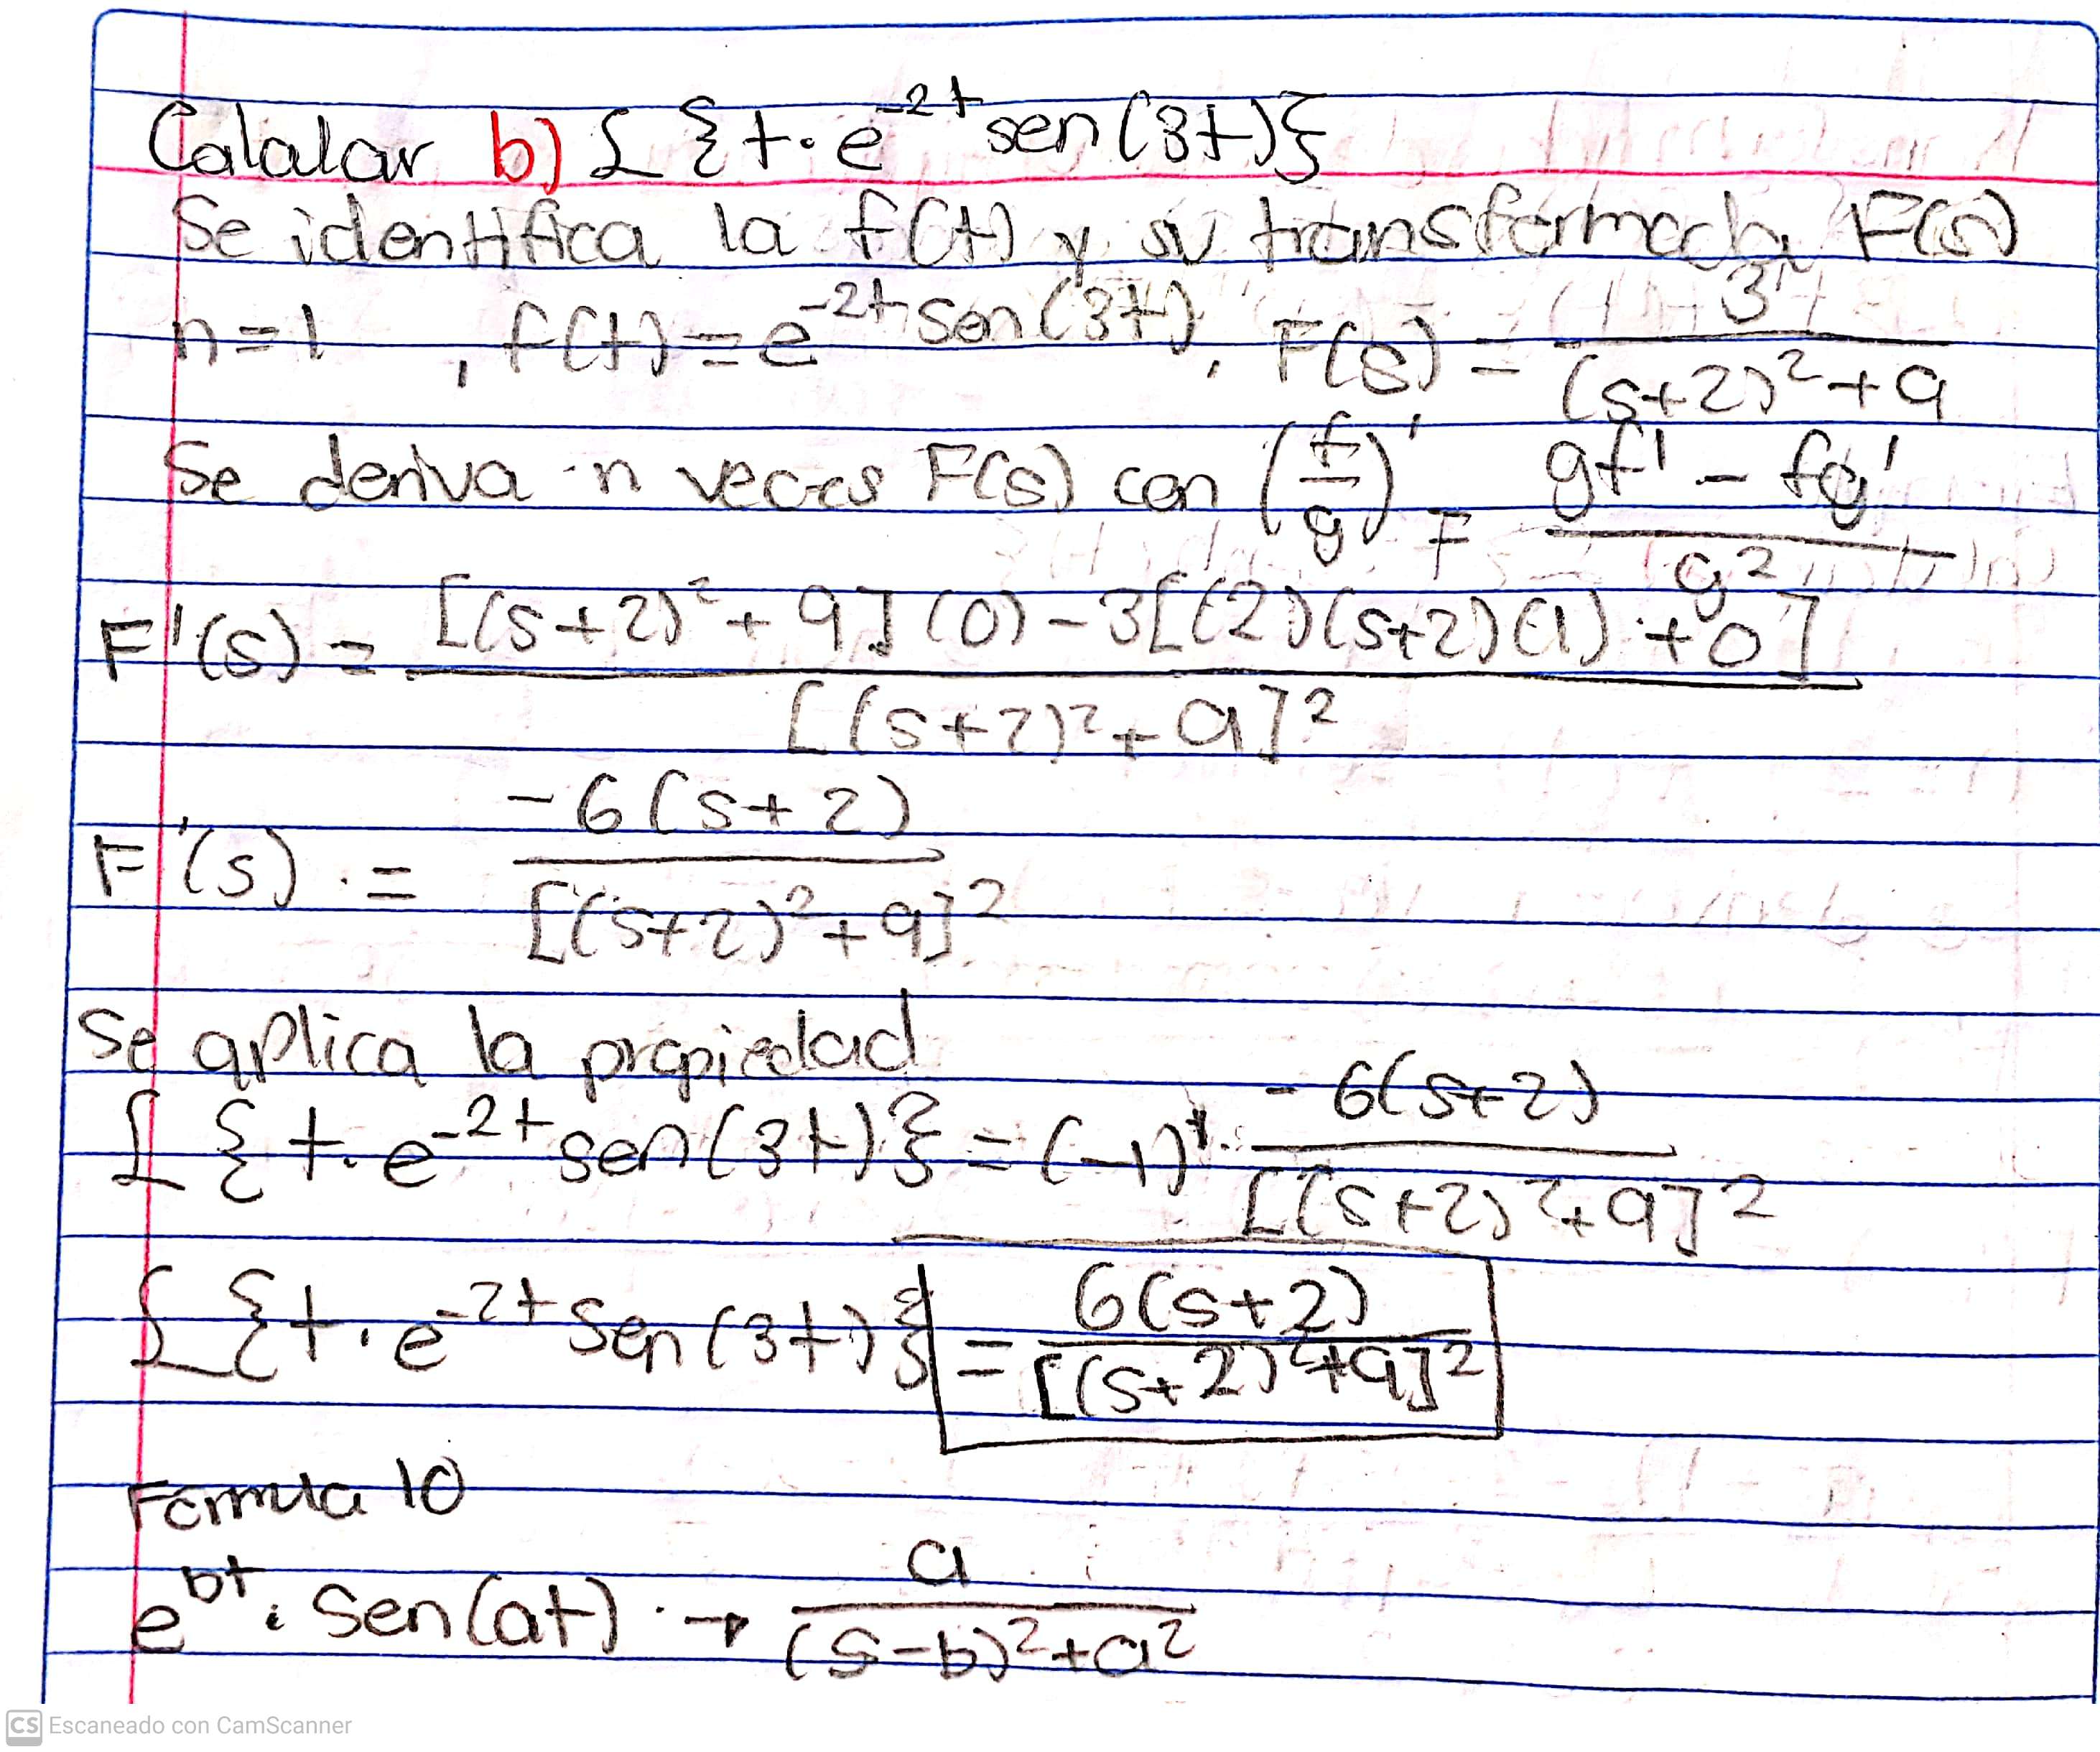 Calcular b) ℒ{t·e^-2t sen(3t)}
Se identifica la f(t) y su transformada F(s)
n=1 , f(t)=e^-2t sen(3t), F(s) = 3/((s+2)²+9)
Se deriva n veces F(s) con (f/g)' = (gf' - fg')/g²
F'(s) = ([(s+2)²+9](0)-3[(2)(s+2)(1)+0])/[(s+2)²+9]²
F'(s) = -6(s+2)/[(s+2)²+9]²
Se aplica la propiedad
ℒ{t·e^-2t sen(3t)} = (-1)¹· -6(s+2)/[(s+2)²+9]²
ℒ{t·e^-2t sen(3t)} = 6(s+2)/[(s+2)²+9]²
Formula 10
e^bt · Sen(at) → a/((s-b)²+a²)
CS Escaneado con CamScanner